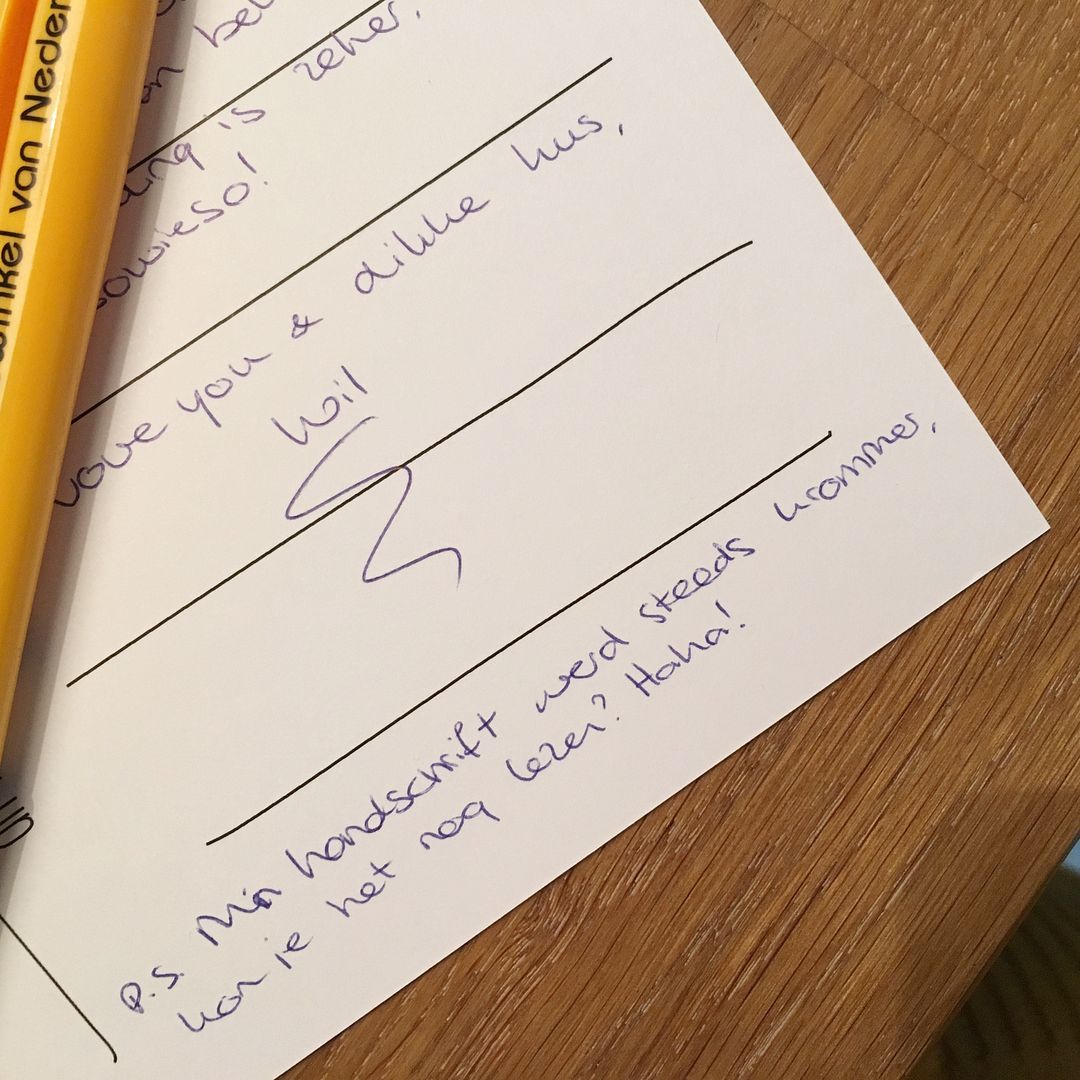 winkel van Neder
bel
zeker.
is
sowieso!
Love you & dikke kus,
Wil
P.S. Mijn handschrift werd steeds krommer,
kon je het nog lezen? Haha!